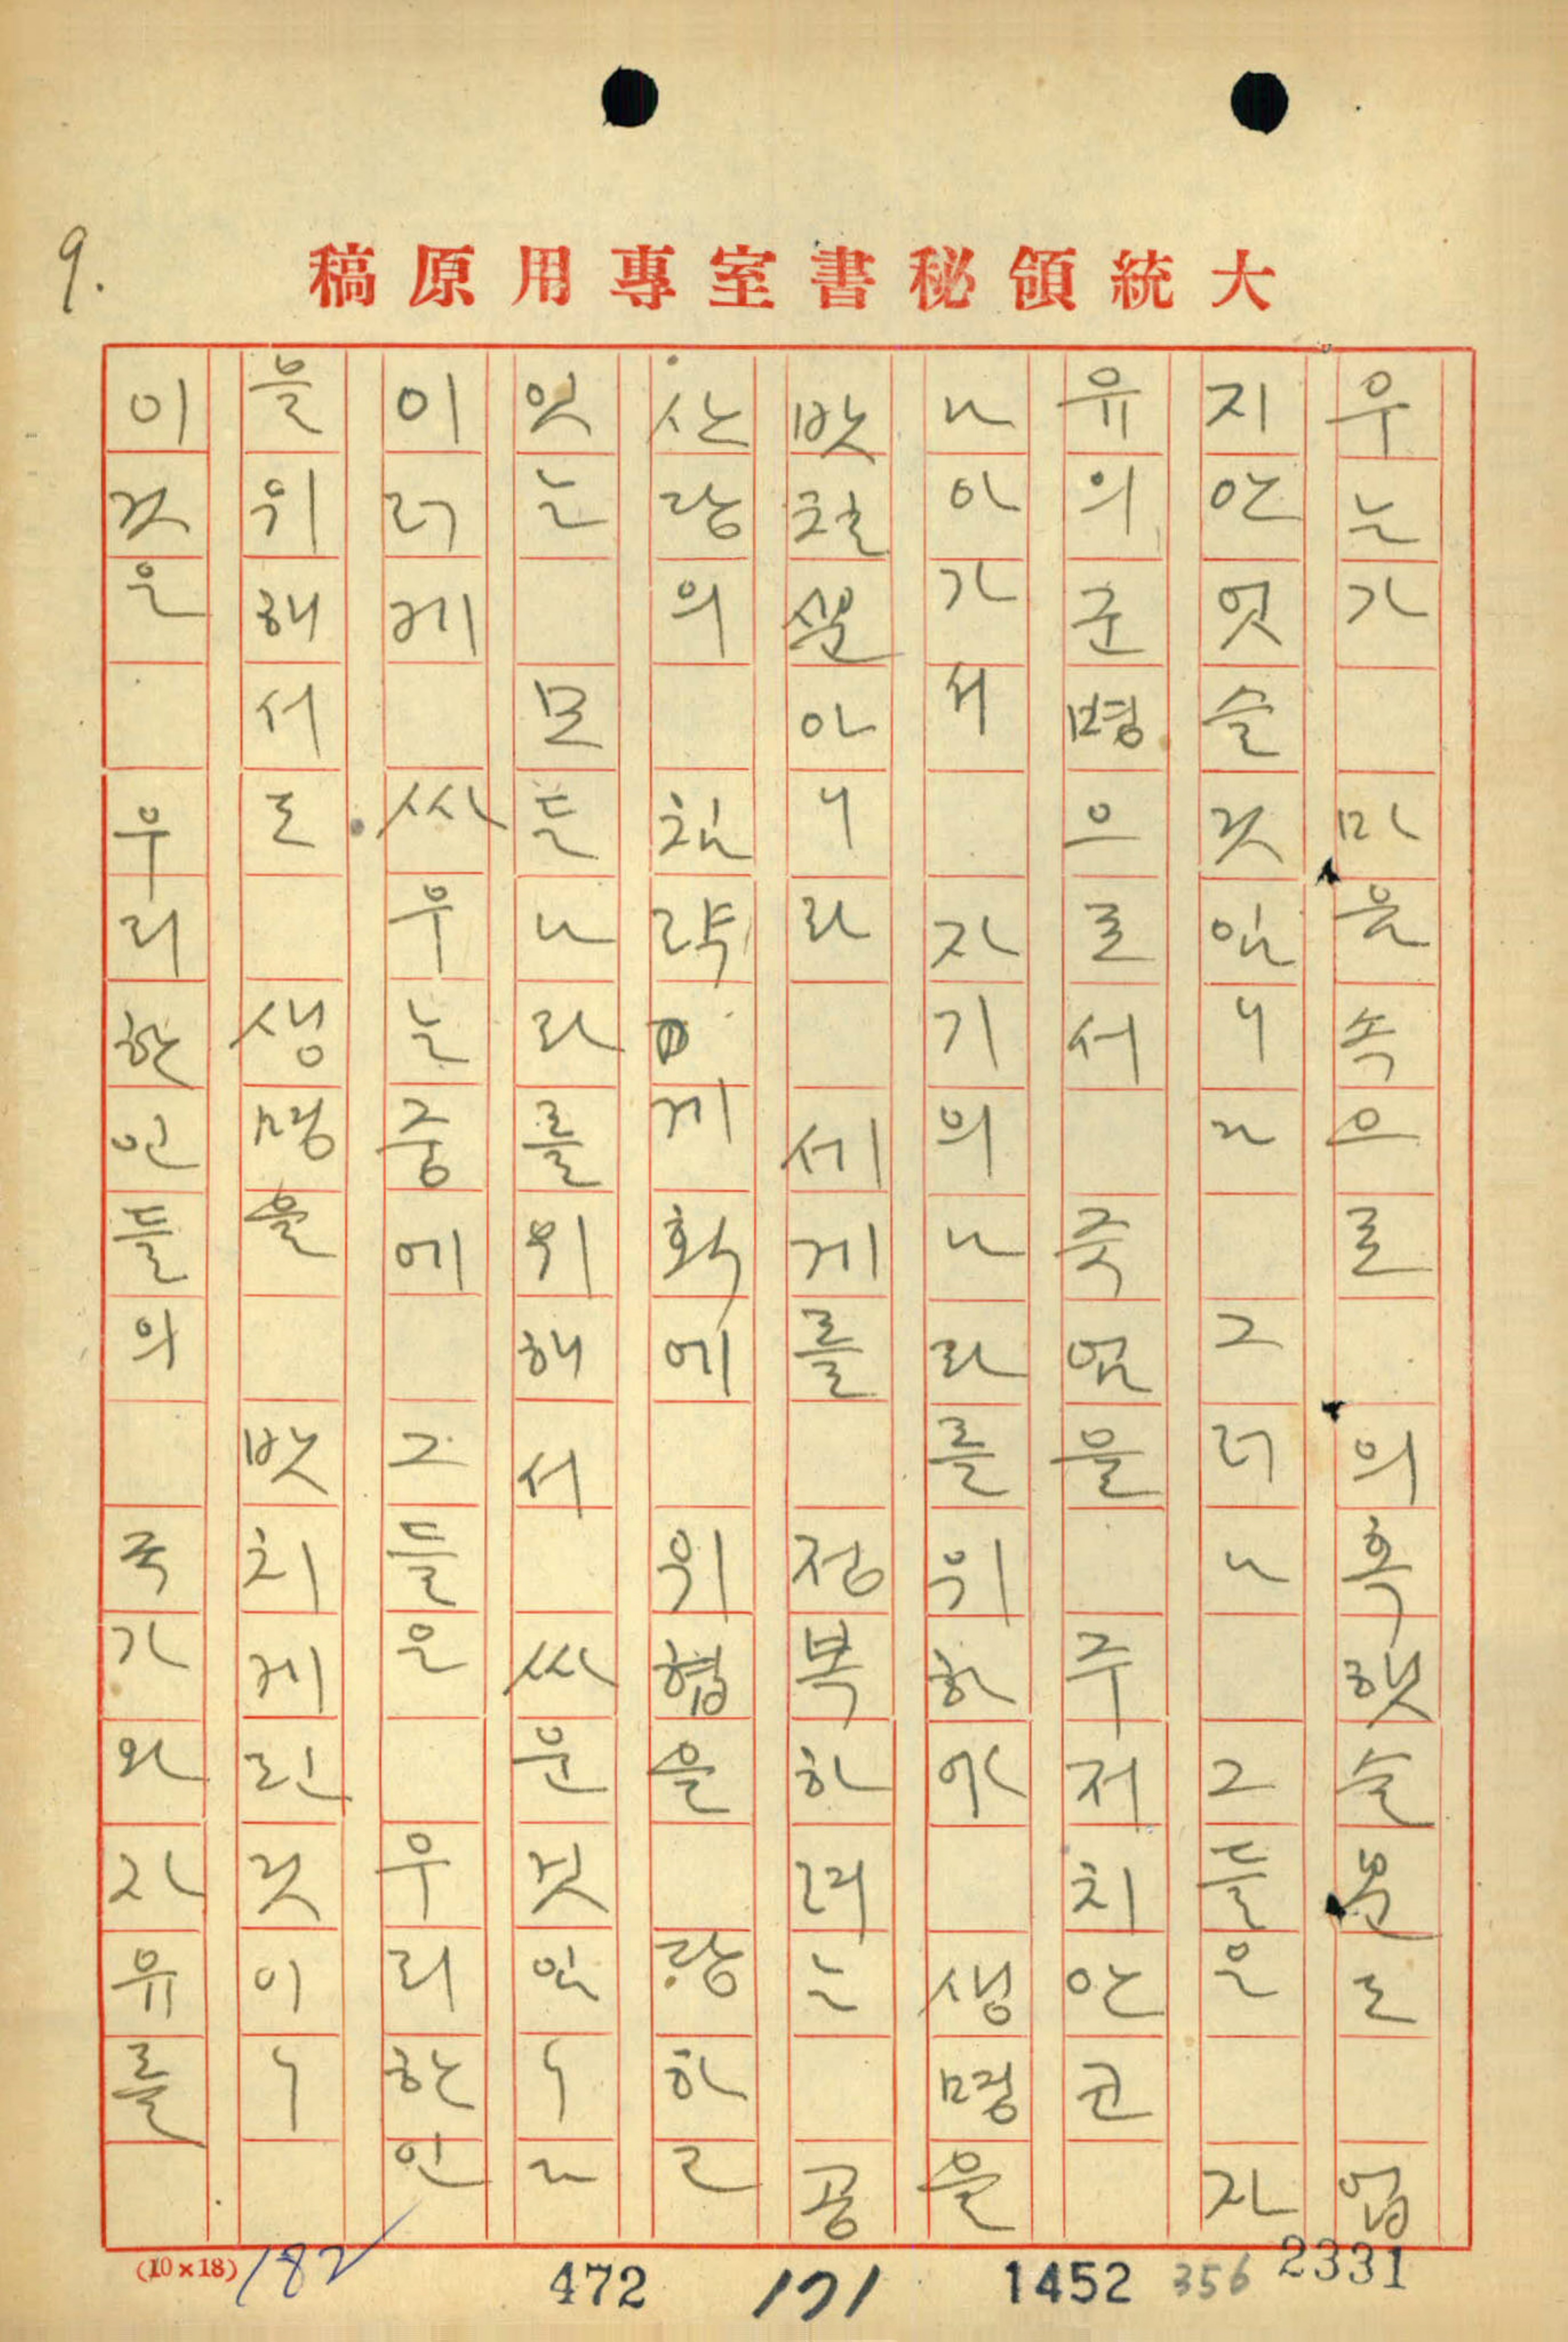 9.
大統領秘書室專用原稿
우는가 마음속으로 업
지안엇슬것임니다 그러나 그들은 자
유의군명으로서 죽엄을 주저치안코
나아가서 자기의나라를위하야 생명을
밧칠ᄲᅮᆫ아니라 세게를 정복하려는 공
산당의 침략게획에 위협을 당하고
잇는 모든나라를위해서 싸운것임니다
이러게 싸우는중에 그들은 우리한인
들위해서도 생명을 밧치게된것이니
이것은 우리한인들의 국가와자유를
(10×18) 182 472 171 1452 356 2331